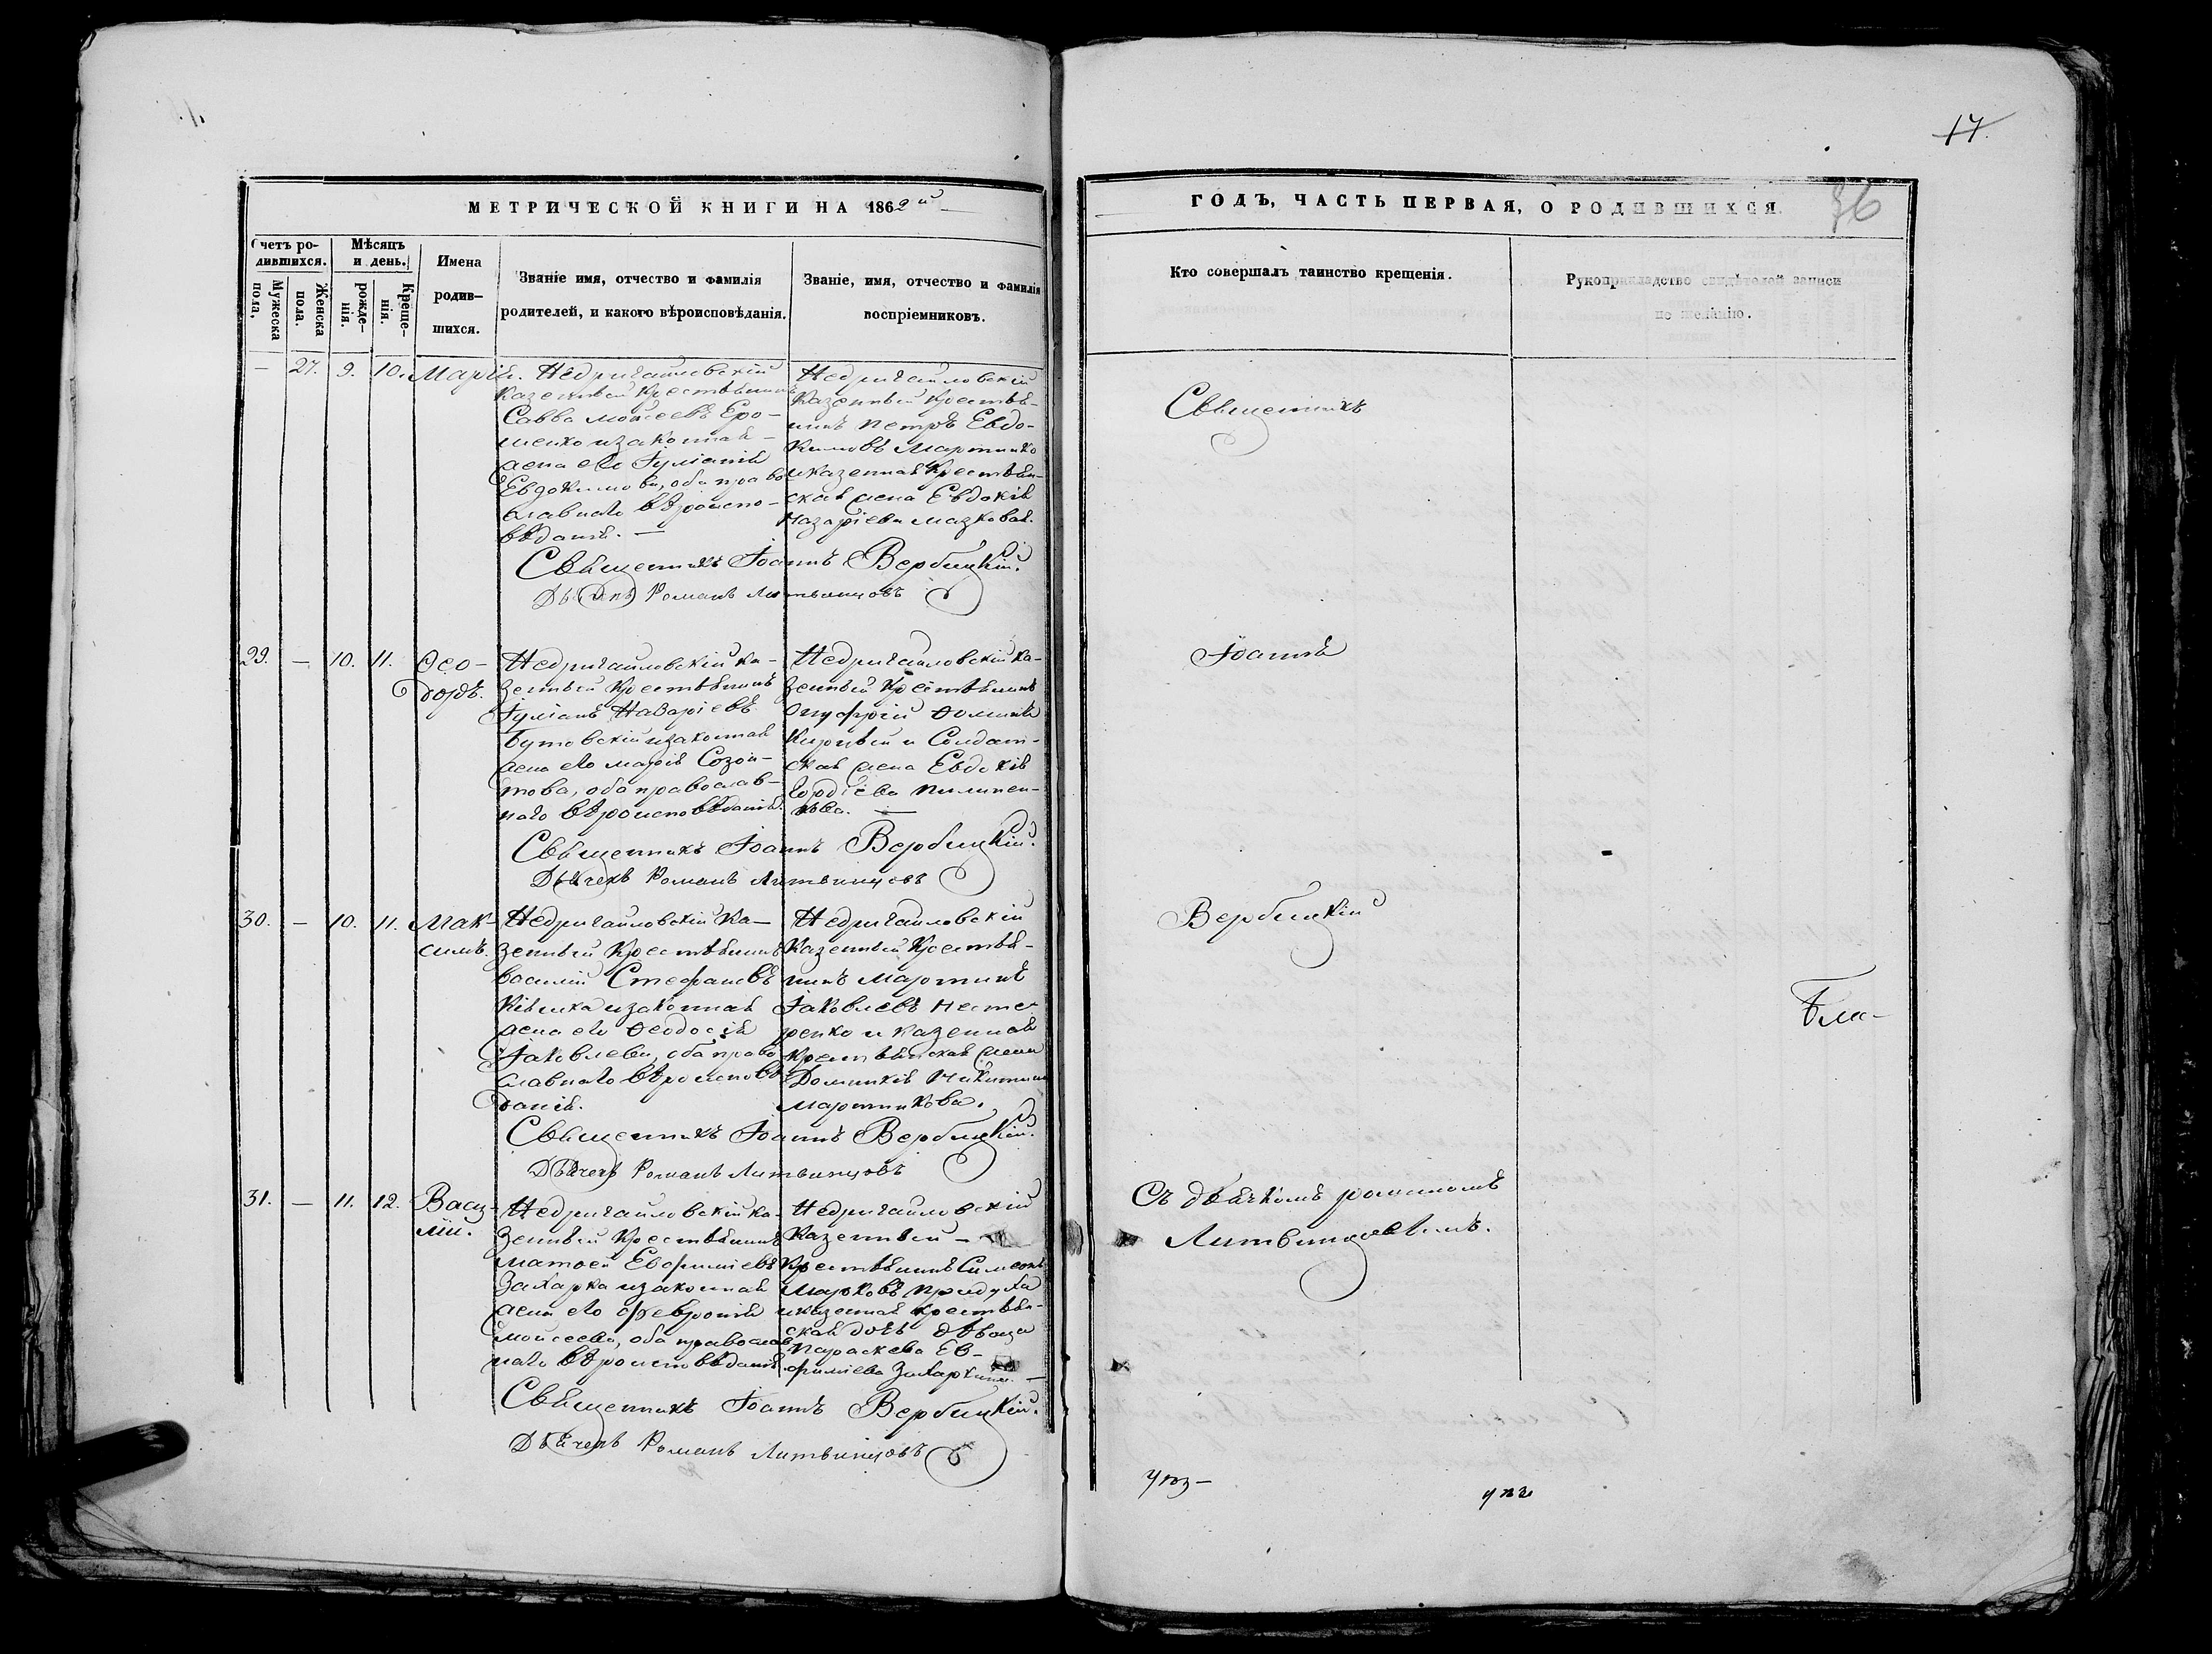 17.
МЕТРИЧЕСКОЙ КНИГИ НА 1862й
ГОДЪ, ЧАСТЬ ПЕРВАЯ, О РОДИВШИХСЯ.
36
Счетъ ро-
дившихся.
Мужеска
пола.
Женска
пола.
Мѣсяцъ
и день.
рожде-
нія.
Креще-
нія.
Имена
родив-
шихся.
Званіе имя, отчество и фамилія
родителей, и какого вѣроисповѣданія.
Званіе, имя, отчество и фамилія
воспріемниковъ.
Кто совершалъ таинство крещенія.
Рукоприкладство свидѣтелей записи
по желанію.
— 27. 9. 10. Марія.
Недригайловскій
казенный крестьянинъ
Савва Моѵсеевъ Еро-
шенко и законная
жена его Іуліанія
Евдокимова, оба право
славнаго вѣроиспо-
вѣданія. —
Недригайловскій
казенный крестья-
нинъ Петръ Евдо-
кимовъ Мартинко
и казенная крестьян-
ская жена Евдокія
Назаріева Мазковая.
Священникъ Іоаннъ Вербицкій.
Дьячекъ Романъ Литвинцовъ
29. — 10. 11. Ѳео-
доръ.
Недригайловскій ка-
зенный крестьянинъ
Іуліанъ Назаріевъ
Бутовскій и законная
жена его Марія Созон-
това, оба православ-
наго вѣроисповѣданія.
Недригайловскій ка-
зенный крестьянинъ
Онуфрій Ѳоминъ
и Солдат-
ская жена Евдокія
Гордіева Пилипен-
кова. —
Священникъ Іоаннъ Вербицкій.
Дьячекъ Романъ Литвинцовъ
30. — 10. 11. Мак-
симъ.
Недригайловскій ка-
зенный крестьянинъ
Василій Стефановъ
Кияшка и законная
жена его Ѳеодосія
Іаковлева, оба право
славнаго вѣроисповѣ
данія.
Недригайловскій
казенный крестья-
нинъ Мартинъ
Іаковлевъ Несте-
ренко и казенная
крестьянская жена
Домникія Никитина
Мартинкова.
Священникъ Іоаннъ Вербицкій.
Дьячекъ Романъ Литвинцовъ
31. — 11. 12. Васи-
лій.
Недригайловскій ка-
зенный крестьянинъ
Матѳей Евфиміевъ
Захарка и законная
жена его Февронія
Моѵсеева, оба православ
наго вѣроисповѣданія.
Недригайловскій
казенный —
крестьянинъ Симеонъ
Марковъ Придуха
и казенная крестьян-
ская дочь дѣвица
Параскева Ев-
фиміева Захаркина. —
Священникъ Іоаннъ Вербицкій.
Дьячекъ Романъ Литвинцовъ
Священникъ
Іоаннъ
Вербицкій
Съ дьячкомъ Романомъ
Литвинцовымъ.
Бла-